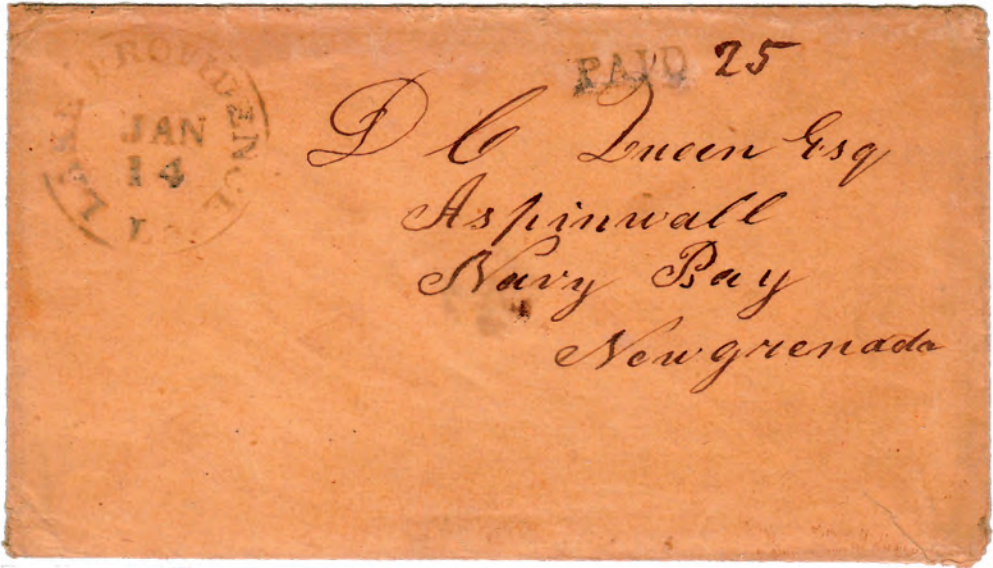 LAKE PROVIDENCE
JAN
14
La.
PAID 25
D C Queen Esq
Aspinwall
Navy Bay
Newgrenada